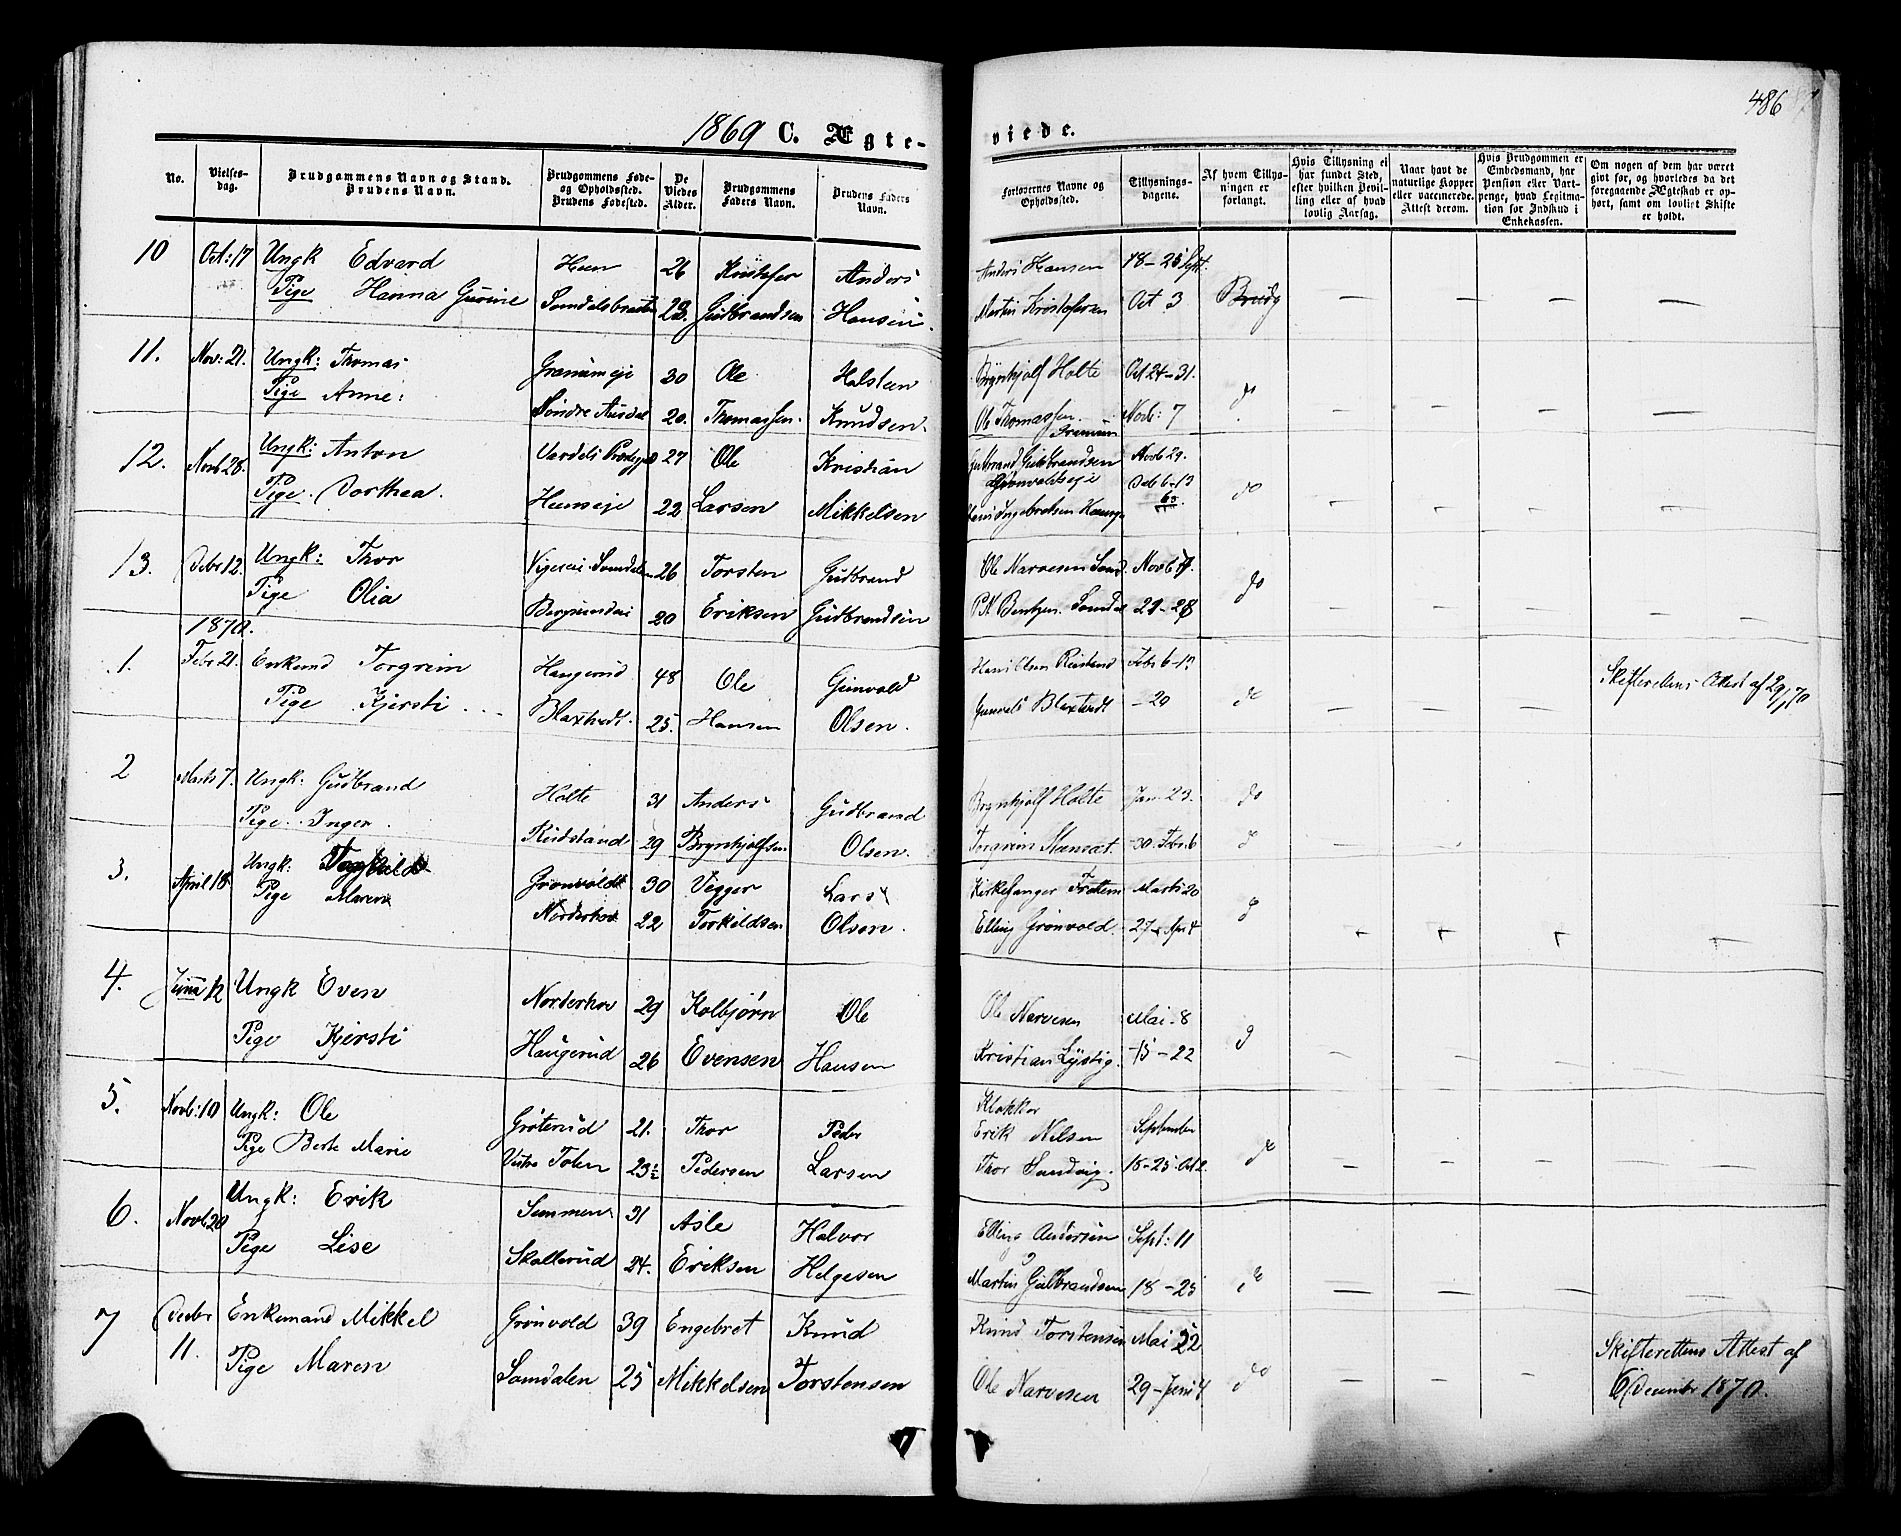 486
1869 C. Ægte-
viede.
No.
Vielses-
dag.
Brudgommens Navn og Stand.
Brudens Navn.
Brudgommens Føde-
og Opholdssted.
Brudens Fødested.
De
Viedes
Alder.
Brudgommens
Faders Navn.
Brudens Faders
Navn.
Forlovernes Navne og
Opholdssted.
Tillysnings-
dagene.
Af hvem Tillys-
ningen er
forlangt.
Hvis Tillysning ei
har fundet Sted,
efter hvilken Bevil-
ling eller af hvad
lovlig Aarsag.
Naar havt de
naturlige Kopper
eller vaccinerede.
Attest derom.
Hvis Brudgommen er
Embedsmand, har
Pension eller Vart-
penge, hvad Legitima-
tion for Indskud i
Enkekassen.
Om nogen af dem har været
givt før, og hvorledes da det
foregaaende Ægteskab er op-
hørt, samt om lovligt Skifte
er holdt.
10 Oct: 17 Ungk Edvard Heen 26 Kristofer Anders Anders Hansen 18-25 Sept.
Pige Hanna Gurine 23. Gudbrandsen Hansen. Martin Kristofersen Oct 3 Brudg
11. Nov: 21. Ungk: Thomas 30 Ole Halsten Brynhjolf Holte Oct 24-31.
Pige Anne: Søndre 20. Thomassen. Knudsen. Ole Thomassen. Novb: 7 do
12. Novb 28. Ungk: Anton 27 Ole Kristian Gulbrand Gulbrandsen
Pige. Dorthea. Heenseje 22 Larsen Mikkelsen Ingebretsen 6-13 do
13. Debr 12. Ungk: Thor 26 Torsten Gudbrand Ole Narvesen Novb
Pige Olia 20 Eriksen Gudbrandsen 21-28 do
1870.
1. Febr 21. Enkemd Torgrim Haugerud 48 Ole Gunvald Hans Olsen Febr 6-13 Skifterettens Attest af 29/1 70
Pige Kjersti Blaxtvedt. 25. Hansen Olsen. Blaxtvedt -20 do
2 Marts 7. Ungk: Gudbrand Holte 31 Anders Gudbrand Brynhjolf Holte Jan 23. do
Pige. Inger. Rudstand 29 Brynhjolfsen Olsen. Torgrim -30. Febr. 6 d
3. April 18 Ungk: Grønvold 30 Vegger Lars Kirkesanger Marts 20
Pige Maren Norderhov 22 Torkildsen Olsen. Elling Grønvold. 27- Apr 4 d
4. Juni 12 Ungk Even Norderhov 29 Kolbjørn Ole Ole Narvesen Mai-8
Pige Kjersti Haugerud 26 Evensen Hansen Kristian Lystig. -15-22 d
5. Novb: 10 Ungk: Ole Grøterud 21. Thor Peder Klokker
Erik Nilsen September
Pige Berte Marie Vestre Toten 23½ Pedersen Larsen Thor Sandvig. 18-25. Oct 2. do
6. Novb 20 Ungk: Erik 31 Asle Halvor Elling Andersen Sept: 11
Pige Lise Skollerud 24. Eriksen Helgesen Martin Gulbrandsen 18-25
7 Decbr 11. Enkemand Mikkel Grønvold 39 Engebret Knud Knud Torstensen Mai 22 Skifterettens Attest af
Pige Maren Somdalen 25 Mikkelsen Torstensen Ole Narvesen 29-Juni 4 do 6 December 1870.